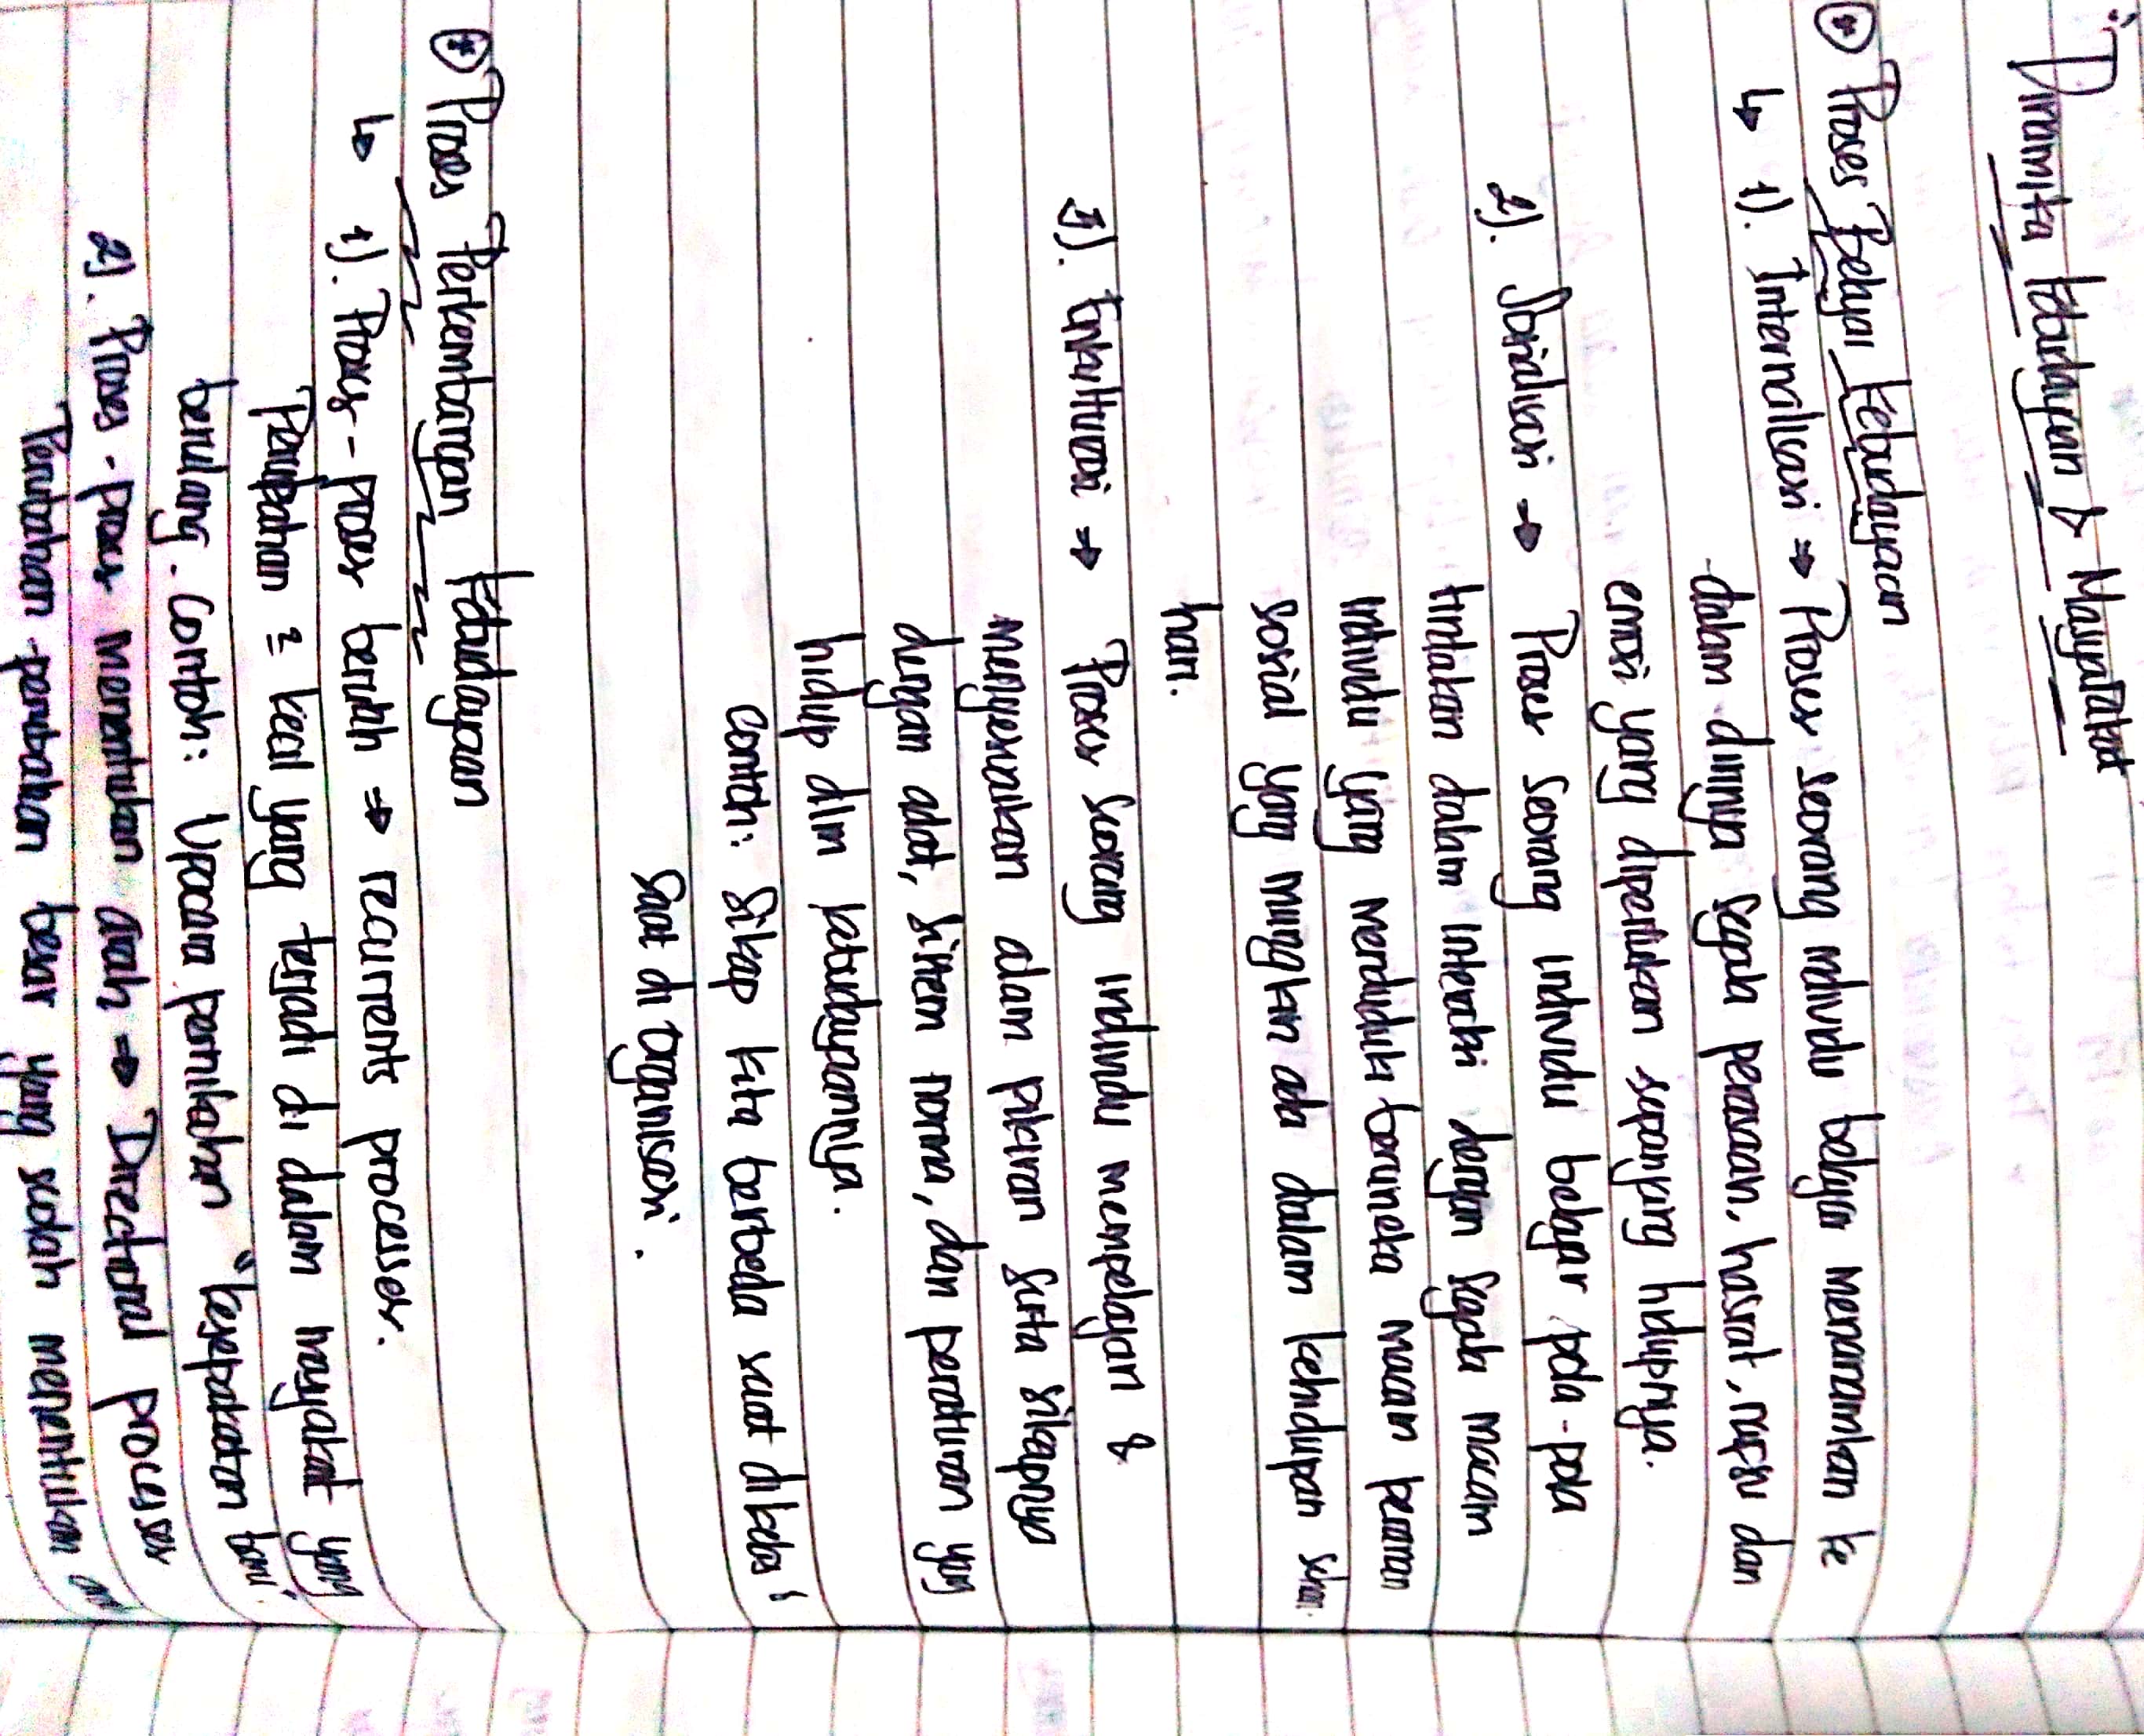 Dinamika Kebudayaan & Masyarakat
Proses Belajar Kebudayaan
↳ 1). Internalisasi → Proses seorang individu belajar menanamkan ke
dalam dirinya segala perasaan, hasrat, nafsu dan
emosi yang diperlukan sepanjang hidupnya.
2). Sosialisasi → Proses seorang individu belajar pola-pola
tindakan dalam interaksi dengan segala macam
individu yang menduduki beraneka macam peranan
sosial yang mungkin ada dalam kehidupan sehari-
hari.
3). Enkulturasi → Proses seorang individu mempelajari &
menyesuaikan alam pikiran serta sikapnya
dengan adat, sistem norma, dan peraturan yang
hidup dlm kebudayaannya.
Contoh: Sikap kita berbeda saat dikelas &
saat di organisasi.
Proses Perkembangan Kebudayaan
↳ 1). Proses-proses berulah → recurrents processes.
Perubahan 2 kecil yang terjadi di dalam masyarakat yang
berulang. Contoh: Upacara pernikahan "kesepakatan
2). Proses-proses menentukan arah → Directional processes
Perubahan-perubahan besar yang sedah menentukan